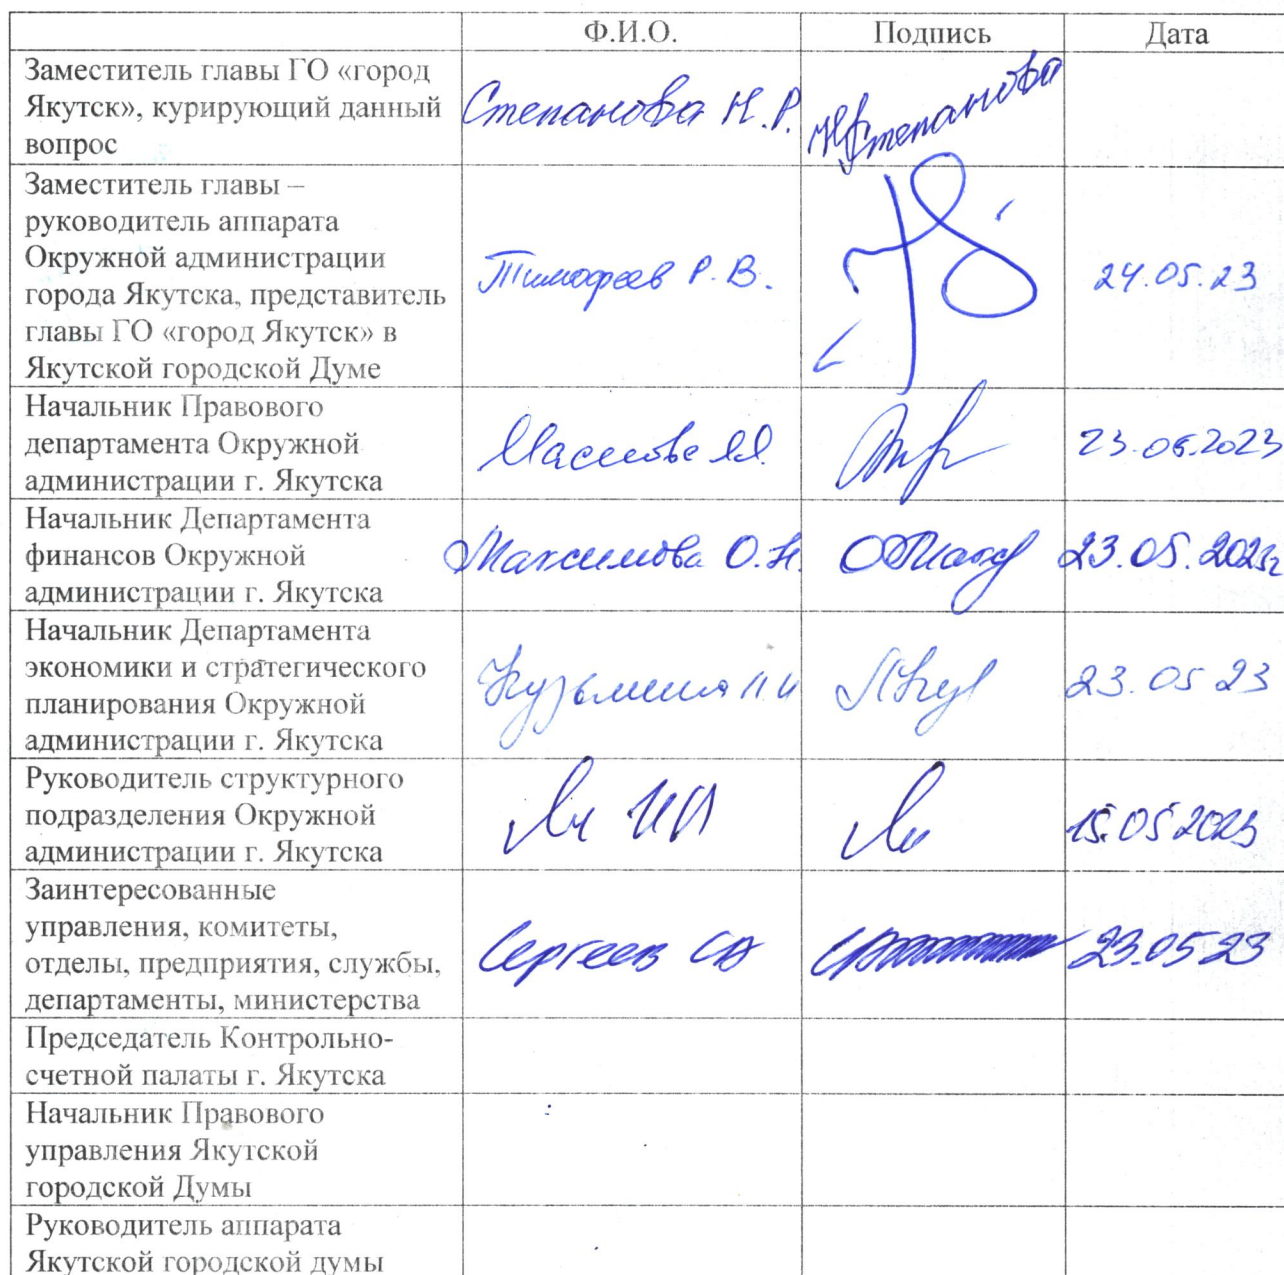 Ф.И.О. Подпись Дата
Заместитель главы ГО «город
Якутск», курирующий данный
вопрос
Степанова Н.Р. Степанова
Заместитель главы –
руководитель аппарата
Окружной администрации
города Якутска, представитель
главы ГО «город Якутск» в
Якутской городской Думе
Тимофеев Р.В. 24.05.23
Начальник Правового
департамента Окружной
администрации г. Якутска
23.05.2023
Начальник Департамента
финансов Окружной
администрации г. Якутска
Максимова О.Н. 23.05.2023г
Начальник Департамента
экономики и стратегического
планирования Окружной
администрации г. Якутска
Кузьмина 23.05 23
Руководитель структурного
подразделения Окружной
администрации г. Якутска
15.05 2023
Заинтересованные
управления, комитеты,
отделы, предприятия, службы,
департаменты, министерства
Сергеев СВ 23.05 23
Председатель Контрольно-
счетной палаты г. Якутска
Начальник Правового
управления Якутской
городской Думы
Руководитель аппарата
Якутской городской думы